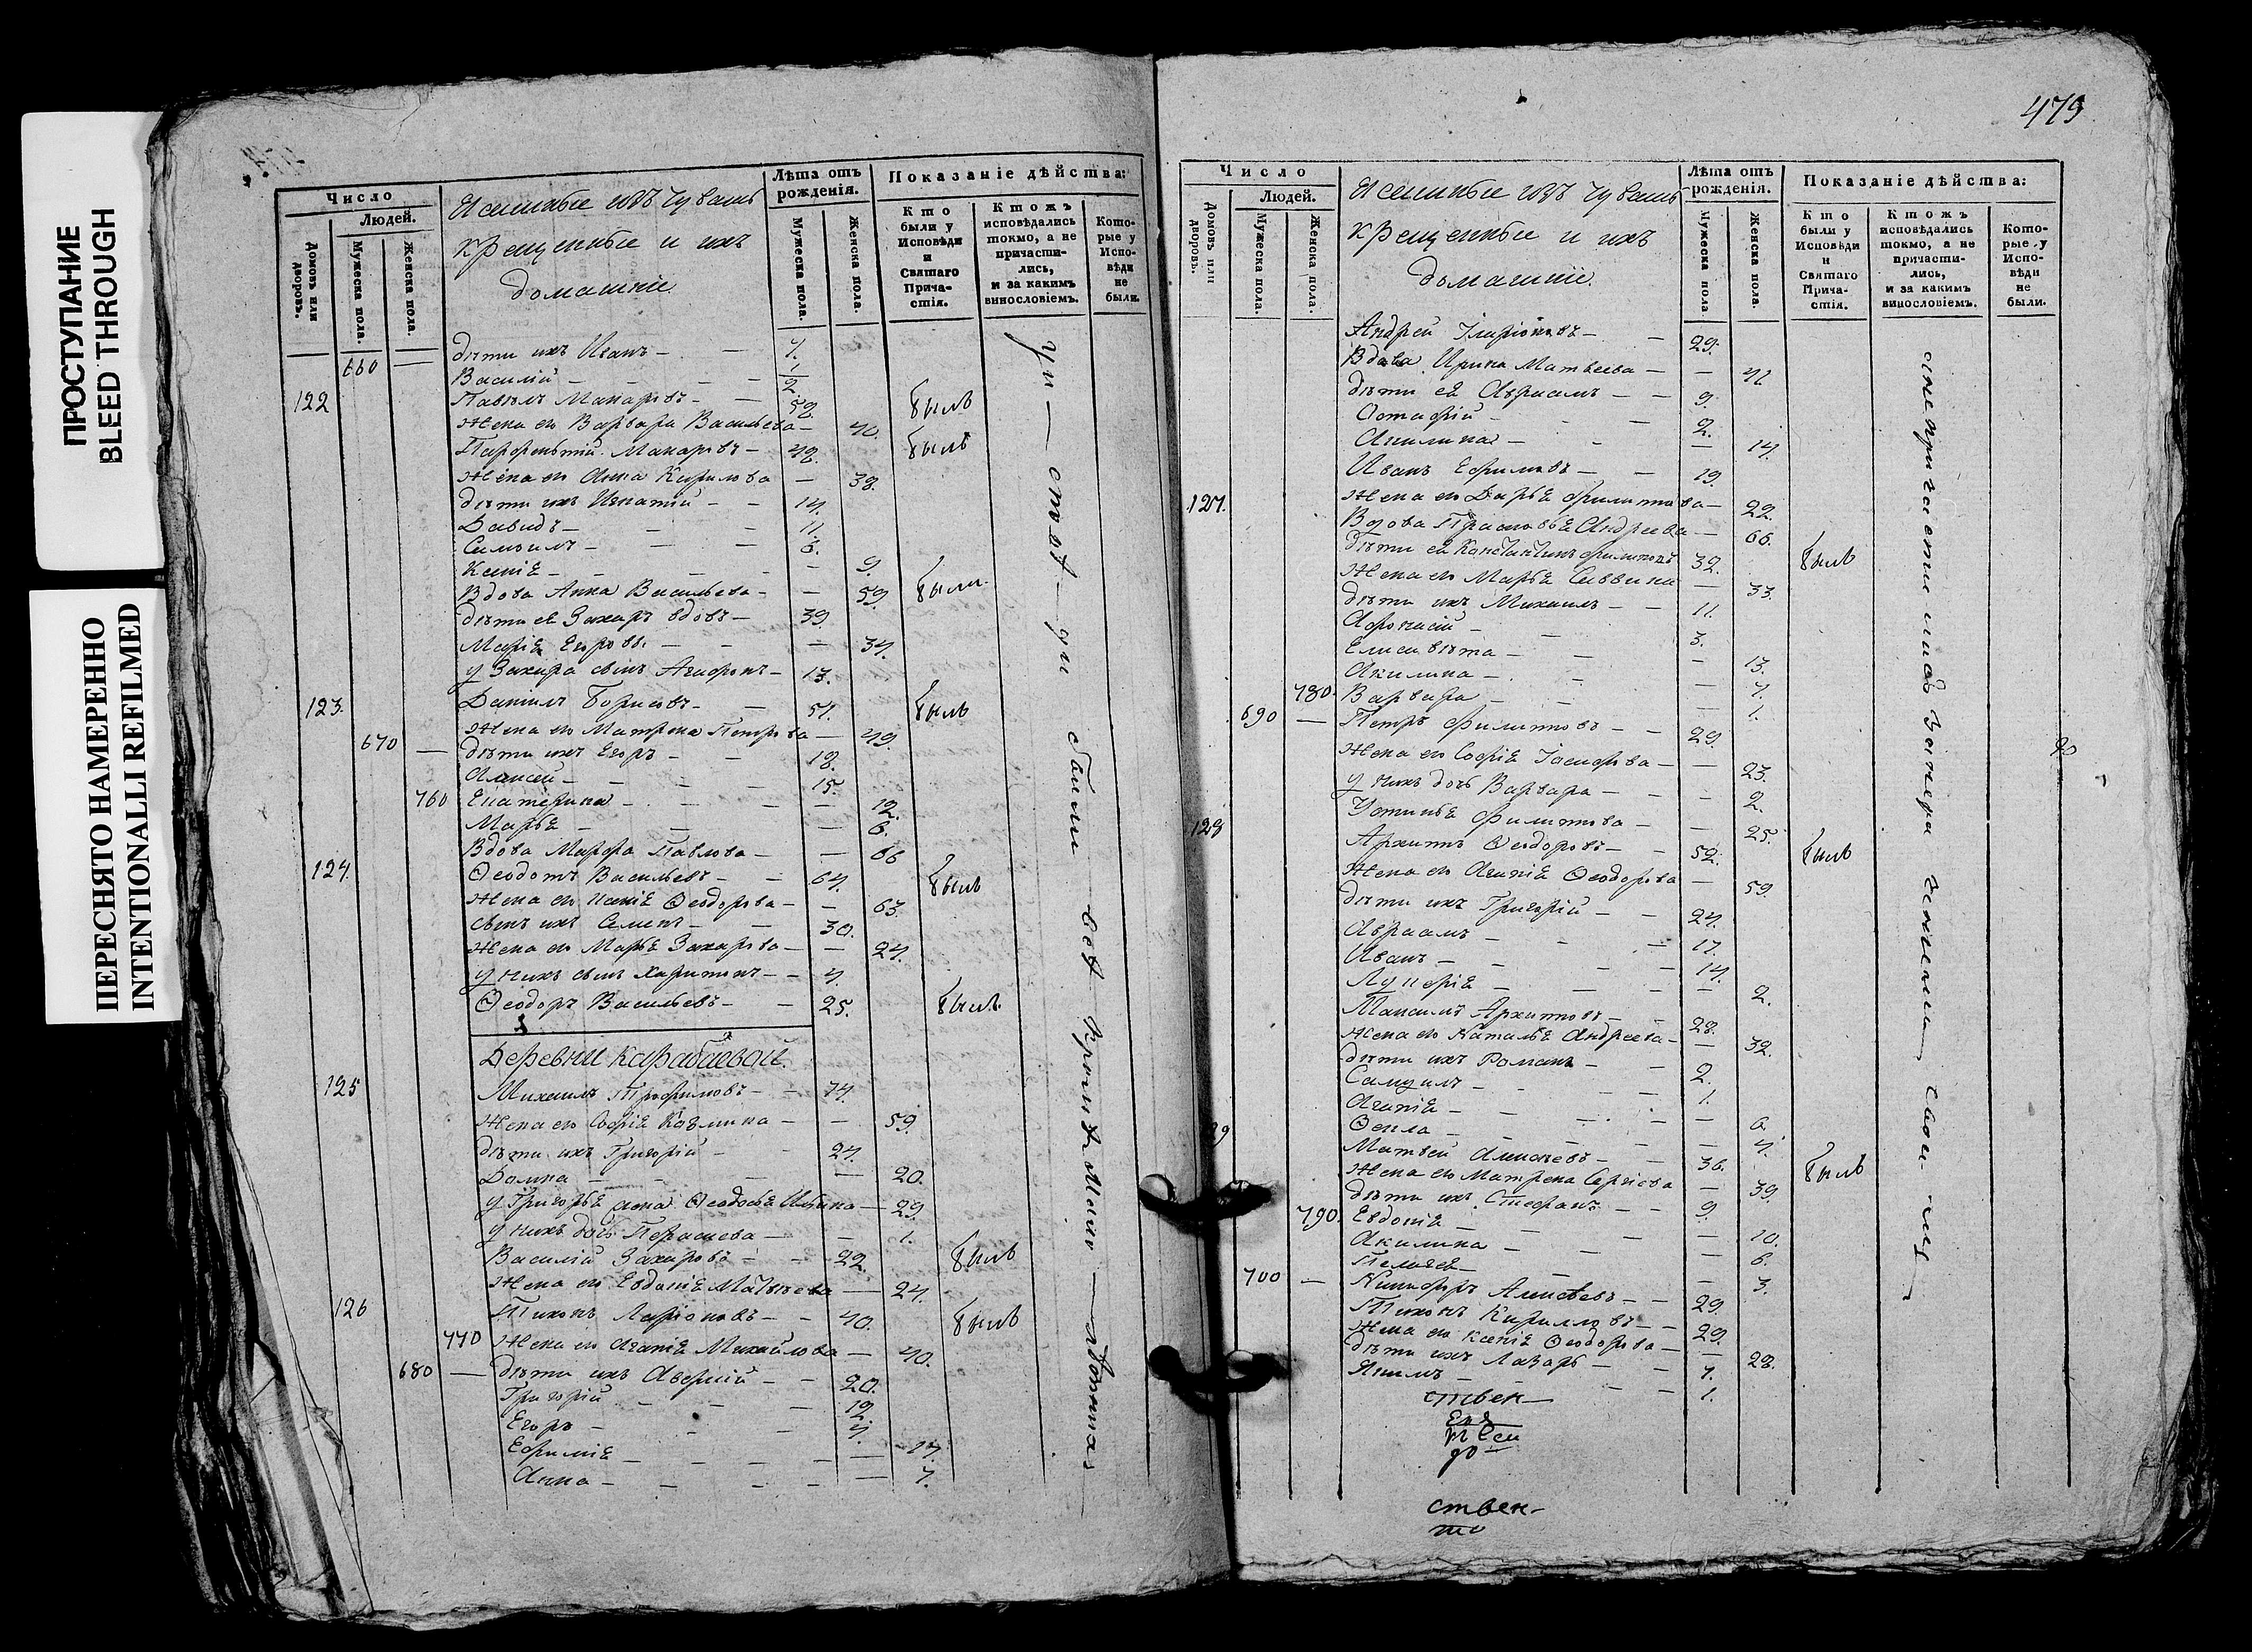 ПРОСТУПАНИЕ
BLEED THROUGH
ПЕРЕСНЯТО НАМЕРЕННО
INTENTIONALLI REFILMED
Число
Людей.
Домовъ или дворовъ.
Мужеска пола.
Женска пола.
изъ чувашъ
крещенные и ихъ
домашніе.
Лѣта отъ рожденія.
Мужеска пола.
Женска пола.
Показаніе дѣйства:
Кто были у Исповѣди и Святаго Причастія.
Ктожъ исповѣдались токмо, а не причастились, и за какимъ винословіемъ.
Которые у Исповѣди не были.
дѣти ихъ Иванъ 7.
660 Василій 2.
122 Павелъ Макаровъ 52. былъ
Жена его Варвара Васильева 40.
Парфентій Макаровъ 42. былъ
Жена его Анна Кирилова 38.
дѣти ихъ Игнатій 14.
Давидъ 11.
6.
Ксенія 9.
Вдова Анна Васильева 59. были
дѣти ея Захаръ вдовъ 39.
Марія Егорова 34.
у Захара сынъ Агафонъ 13.
123. Даніилъ Борисовъ 51. былъ
Жена его Матрена Петрова 49.
670 дѣти ихъ Егоръ 18.
Алексей 15.
760 Екатерина 12.
Марья 6.
Вдова Марфа Павлова 66
124. Ѳеодотъ Васильевъ 64. былъ
Жена его Ксенія Ѳеодорова 63.
сынъ ихъ Семенъ 30.
Жена его Марья Захарова 24.
у нихъ сынъ Харитонъ 4.
Ѳеодоръ Васильевъ 25. былъ
Деревни Карабаевой.
125 Михаилъ Трофимовъ 74.
Жена его Софія Козмина 59.
дѣти ихъ Григорій 24.
Домна 20.
у Григорья жена Ѳеодосья 29.
у нихъ дочь Парасцева 1.
Василій Захаровъ 22. былъ
Жена его Евдокія Матвеева 24.
126 Тихонъ Ларіоновъ 40. былъ
770 Жена его Агапія Михайлова 40.
680 дѣти ихъ Аверкій 20.
Григорій 12.
Егоръ 4.
Ефимія 17.
Анна 7.
479
Число
Людей.
Домовъ или дворовъ.
Мужеска пола.
Женска пола.
изъ чувашъ
крещенные и ихъ
домашніе.
Лѣта отъ рожденія.
Мужеска пола.
Женска пола.
Показаніе дѣйства:
Кто были у Исповѣди и Святаго Причастія.
Ктожъ исповѣдались токмо, а не причастились, и за какимъ винословіемъ.
Которые у Исповѣди не были.
Андрей Иларіоновъ 29.
Вдова Ирина Матвеева 41
дѣти ея Авраамъ 9.
Остафій 2.
Акилина 14.
Иванъ Ефимовъ 19.
127. Жена его Дарья Филипова 22.
Вдова Прасковья Андреева 66.
дѣти ея Константинъ Филиповъ 32. былъ
Жена его Марья Саввина 33.
дѣти ихъ Михаилъ 11.
Афонасій 3.
Елисавета 13.
Акилина 7.
780. Варвара 1.
690 Петръ Филиповъ 29.
Жена его Софія 23.
у нихъ дочь Варвара 2.
Устинья Филипова 25.
128 Архипъ Ѳеодоровъ 52. былъ
Жена его Агапія Ѳеодорова 59.
дѣти ихъ Григорій 24.
Авраамъ 17.
Иванъ 14.
Лукерія 2.
Максимъ Архиповъ 28.
Жена его Наталья Андреева 32.
дѣти ихъ Романъ 2.
Самуилъ 1.
Агапія 6.
Ѳекла 4.
Матвей Алексеевъ 36. былъ
Жена его Матрена Сергіева 39.
дѣти ихъ Стефанъ 9.
790. Евдокія 10.
Акилина 6.
Пелагея 3.
700 Никифоръ Алексеевъ 29.
Тихонъ Кирилловъ 29.
Жена его Ксенія Ѳеодорова 28.
дѣти ихъ Лазарь 7.
1.
ствен
ствен-